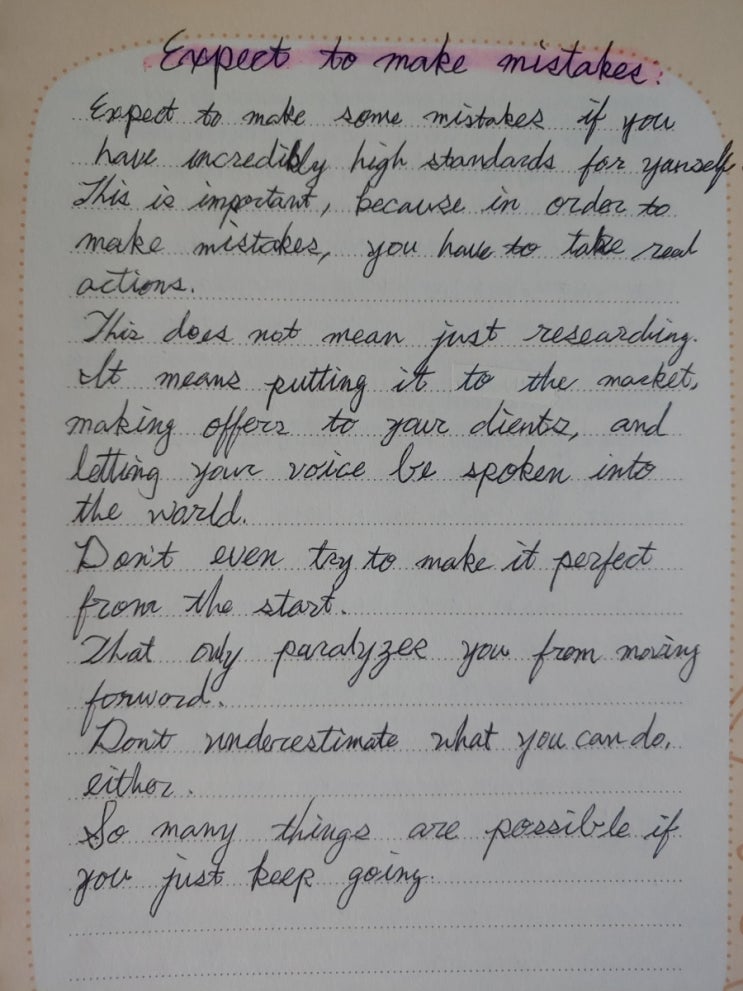 Expect to make mistakes:
Expect to make some mistakes if you
have incredibly high standards for yourself.
This is important, because in order to
make mistakes, you have to take real
actions.
This does not mean just researching.
It means putting it to the market,
making offers to your clients, and
letting your voice be spoken into
the world.
Don't even try to make it perfect
from the start.
That only paralyzes you from moving
forward.
Don't underestimate what you can do,
either.
So many things are possible if
you just keep going.